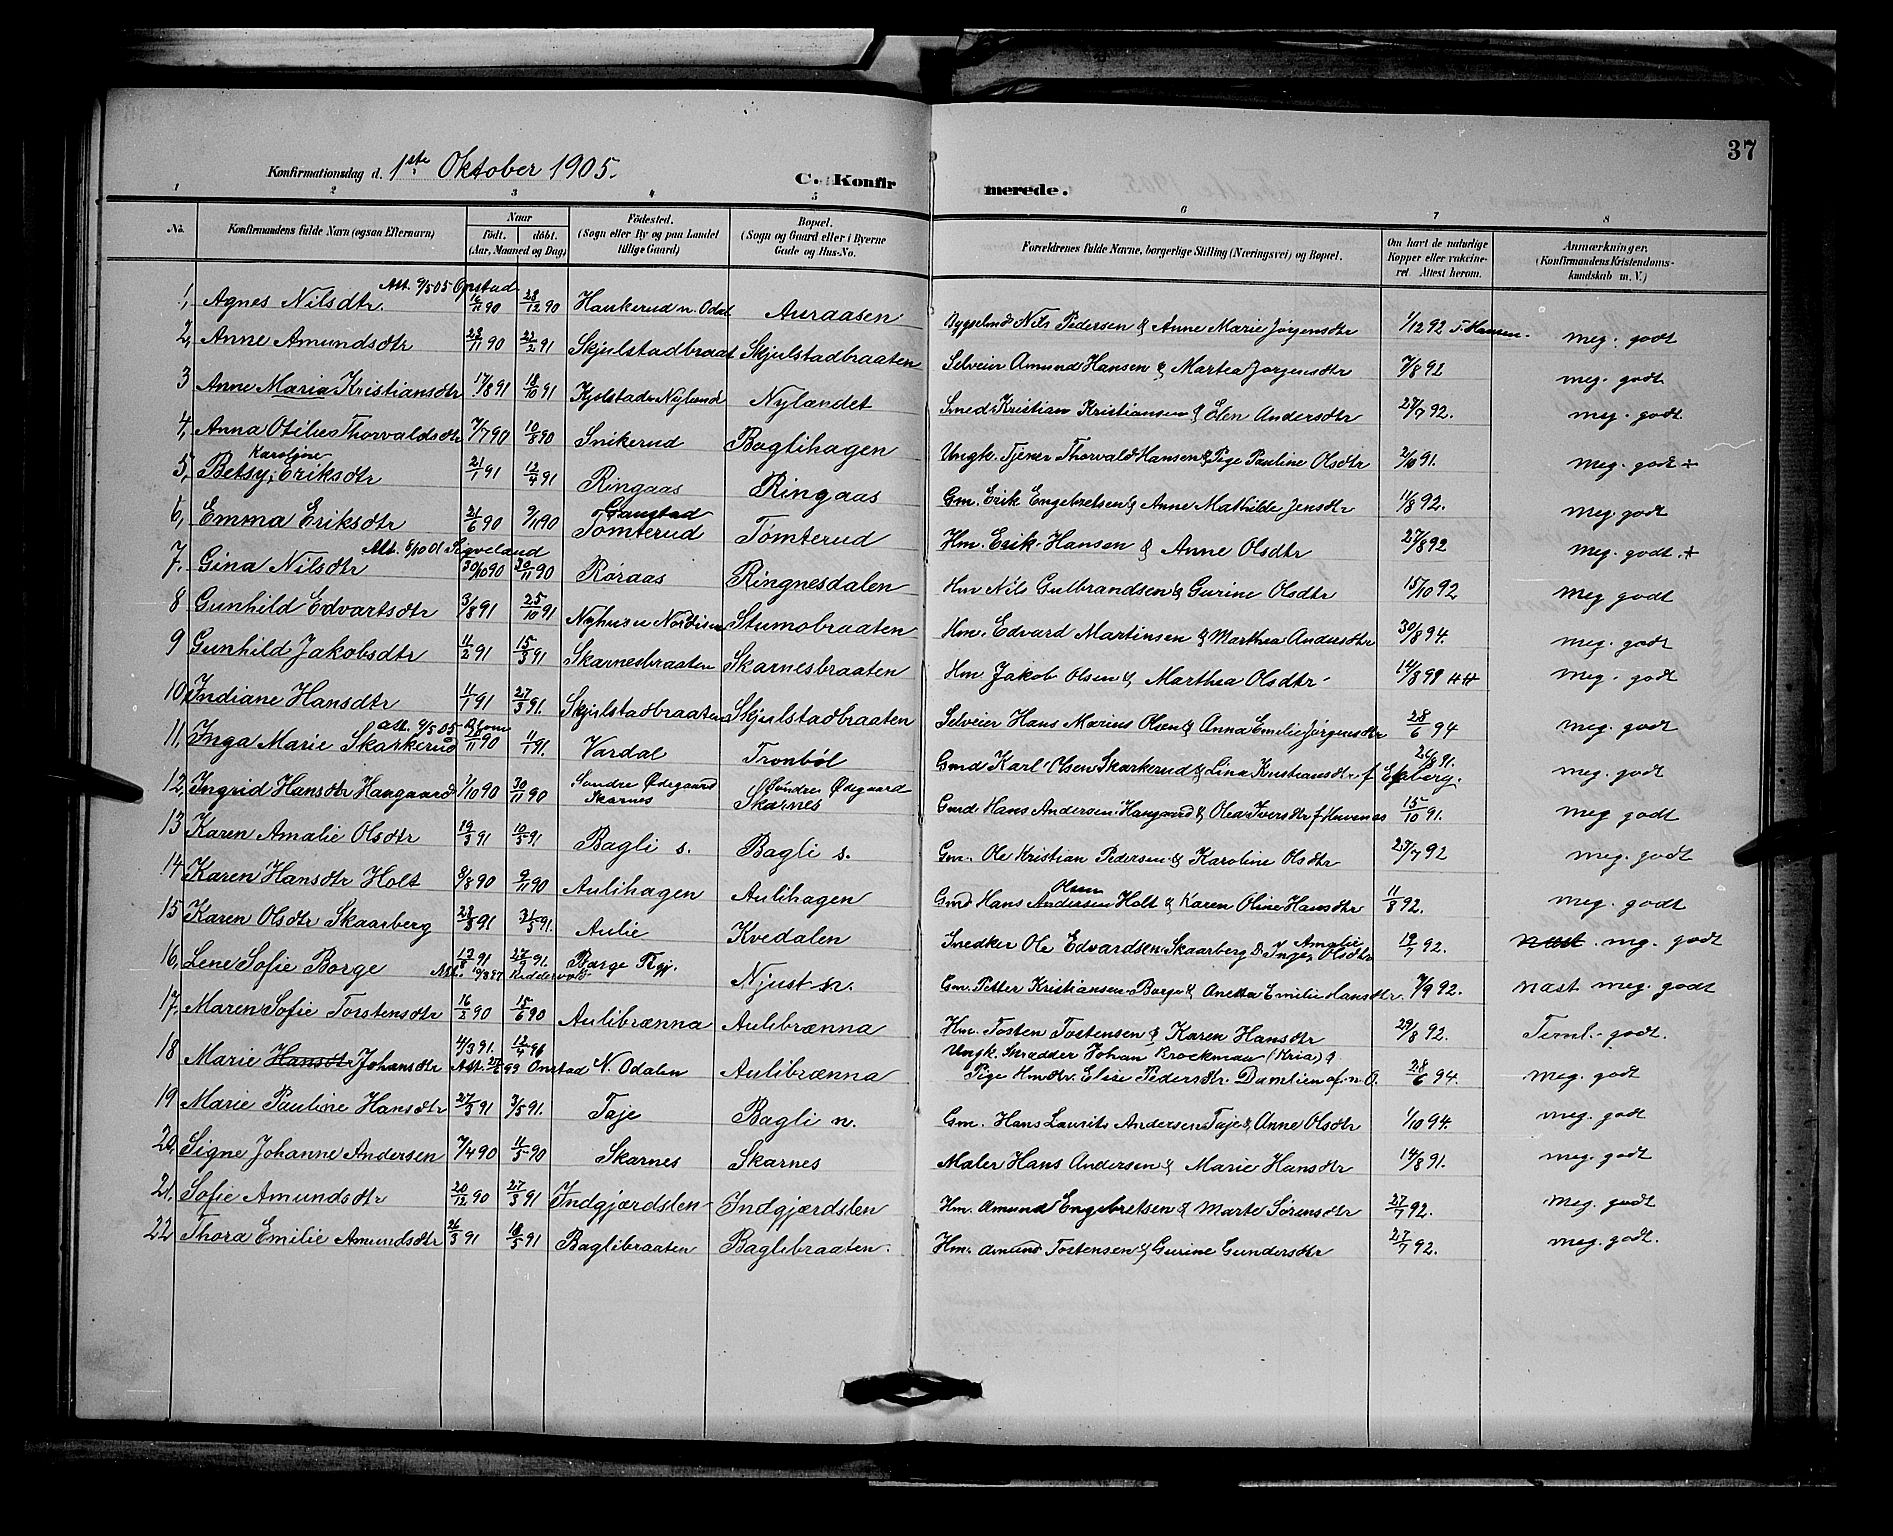 37
Konfirmationsdag d. 1ste Oktober 1905.
C. Konfirmerede.
1 2 3 4 5 6 7 8
No. Konfirmandens fulde Navn (ogsaa Efternavn) Naar født. døbt. (Aar, Maaned og Dag) Fødested. (Sogn eller By og paa Landet tillige Gaard) Bopæl. (Sogn og Gaard eller i Byerne Gade og Hus-No. Forældrenes fulde Navne, borgerlige Stilling (Næringsvei) og Bopæl. Om havt de naturlige Kopper eller vakcineret. Attest herom. Anmærkninger. (Konfirmandens Kristendomskundskab m. V.)
Att. 9/5 05 Opstad
1, Agnes Nilsdtr. 16/11 90 28/12 90 Haukerud n. Odal Auraasen Bygselmd Nils Pedersen & Anne Marie Jørgensdtr 1/12 92 T. Hansen. meg. godt
2, Anne Amundsdtr 23/11 90 22/2 91 Skjulstadbraat Skjulstadbraaten Selveier Amund Hansen & Martea Jørgensdtr 7/8 92 meg. godt
3 Anne Maria Kristiansdtr 17/8 91 18/10 91 Kjolstad Nyland Nylandet Smed Kristian Kristiansen & Elen Andersdtr 27/7 92. meg. godt
4, Anna Otilie Thorvaldsdtr 7/7 90 10/8 90 Snikerud Baglihagen Ungk. Tjener Thorvald Hansen & Pige Pauline Olsdtr 2/10 91. meg. godt +
Karoline
5, Betsy Eriksdtr 21/1 91 12/4 91 Ringaas Ringaas Gm. Erik Engebretsen & Anne Mathilde Jensdtr 11/8 92. meg. godt
6, Emma Eriksdtr 21/6 90 9/11 90 Tomterud Tomterud Hm. Erik Hansen & Anne Olsdtr 27/8 92 meg. godt. +
Att. 5/10 01 Sigveland
7. Gina Nilsdtr 30/10 90 30/11 90 Røraas Ringnesdalen Hm Nils Gulbrandsen & Gurine Olsdtr 15/10 92 meg godt
8 Gunhild Edvartsdtr 3/8 91 25/10 91 Nyhuseie Stumobraaten Hm. Edvard Martinsen & Marthea Andersdtr 30/8 94. meg. godt
9 Gunhild Jakobsdtr 11/2 91 15/3 91 Skarnesbraaten Skarnesbraaten Hm Jakob Olsen & Marthea Olsdtr 14/8 99 meg. godt
10 Indiane Hansdtr 1/1 91 27/3 91. Skjulstadbraaten Skjulstadbraaten Selveier Hans Marius Olsen & Anna Emilie Jørgensdtr 28/6 94 meg. godt
Att. 9/5 05 Blom
11, Inga Marie Skarkerud 2/11 90 1/1 91. Vardal Tronbøl Gmd Karl Olsen Skarkerud & Lina Kristiansdtr f. Egeberg. 24/8 91. meg. godt
12, Ingrid Hansdtr Haugaard 1/10 90 30/11 90 Søndre Ødegaard Skarnes Søndre Ødegaard Skarnes Gmd. Hans Andersen Haugaard & Olea Iversdtr 15/10 91. meg godt
13 Karen Amalie Olsdtr 19/3 91 10/5 91 Bagli s. Bagli s. Gm. Ole Kristian Pedersen & Karoline Olsdtr 27/7 92 meg. godt
Olsen
14 Karen Hansdtr Holt 3/8 90 9/11 90 Aulihagen Aulihagen Gmd Hans Andersen Holt & Karen Oline Hansdtr 11/8 92. meg. godt
15 Karen Olsdtr Skaarberg 23/3 91 31/5 91. Aulie Kvedalen Snedker Ole Edvardsen Skaarberg & Inger Amalie Olsdtr 19/7 92. næst mg. godt
16, Lene Sofie Borge 13/8 91 27/9 91. Borge Njust n. Gm. Petter Kristiansen Borge & Anetta Emilie Hansdtr. 7/9 92. næst meg. godt
Att. 10/8 97 Riddervold
17. Maren Sofie Torstensdtr 16/2 90 15/6 90 Aulibrænna Aulibrænna Hm. Tosten Tostensen & Karen Hansdtr 29/8 92. Teml. godt.
18 Marie Hansdtr Johansdtr 4/3 91. 12/4 91 Att. 27/6 99 Onstad N. Odalen Aulibrænna Ungk. Skrædder Johan Brockman (Kria) & Pige Hmdtr. Elise Pedersdtr. Damlien af n. O. 28/6 94. meg. godt
19 Marie Pauline Hansdtr 27/3 91 3/5 91. Taje Bagli n. Gm. Hans Laurits Andersen Taje & Anne Olsdtr 1/10 94. meg. godt
20, Signe Johanne Andersen 7/4 90 11/5 90 Skarnes Skarnes Maler Hans Andersen & Marie Hansdtr 14/8 91. meg. godt
21, Sofie Amundsdtr 20/12 90 27/3 91 Indgjærdslen Indgjærdslen Hm. Amund Engebretsen & Marte Sørensdtr 27/7 92. meg. godt
22 Thora Emilie Amundsdtr 26/3 91 18/5 91 Baglibraaten Baglibraaten. Hm. Amund Tostensen & Gurine Gundersdtr 27/7 92. meg. godt.